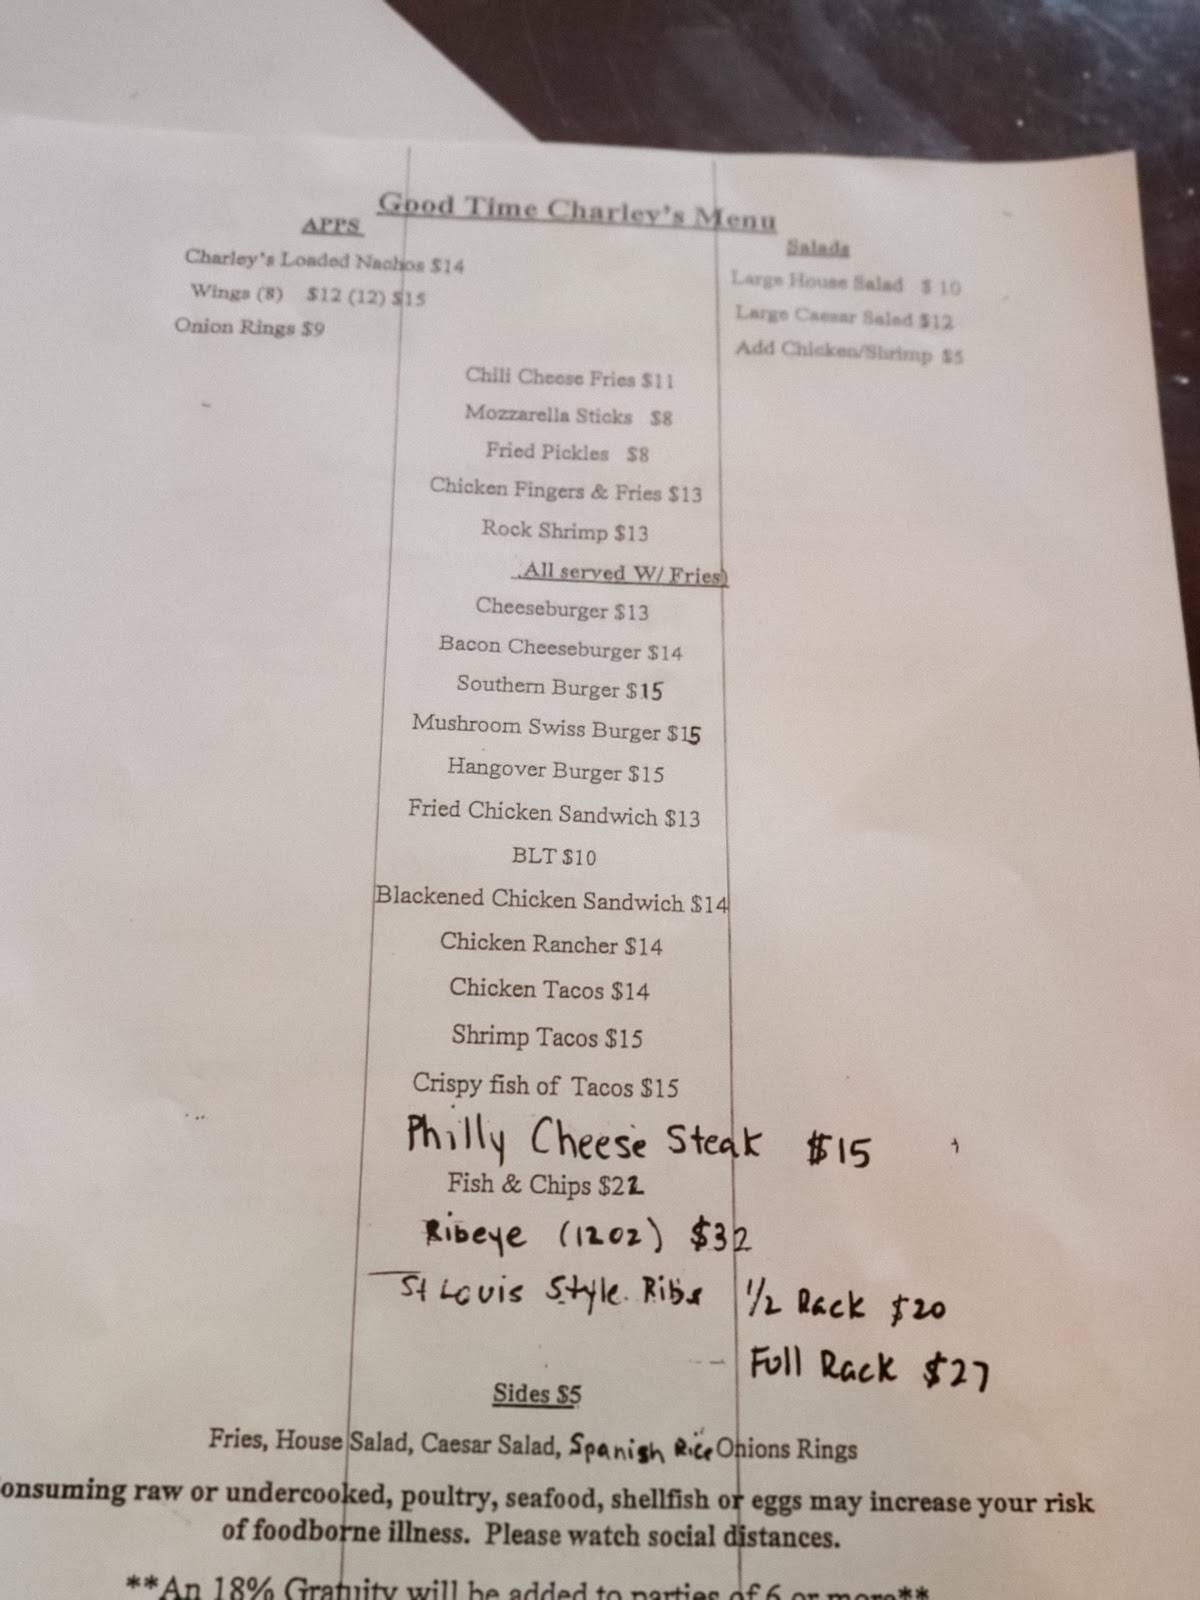 Good Time Charley's Menu
APPS
Charley's Loaded Nachos $14
Wings (8) $12 (12) $15
Onion Rings $9
Salads
Large House Salad $ 10
Large Caesar Salad $12
Add Chicken/Shrimp $5
Chili Cheese Fries $11
Mozzarella Sticks $8
Fried Pickles $8
Chicken Fingers & Fries $13
Rock Shrimp $13
.All served W/ Fries)
Cheeseburger $13
Bacon Cheeseburger $14
Southern Burger $15
Mushroom Swiss Burger $15
Hangover Burger $15
Fried Chicken Sandwich $13
BLT $10
Blackened Chicken Sandwich $14
Chicken Rancher $14
Chicken Tacos $14
Shrimp Tacos $15
Crispy fish of Tacos $15
Philly Cheese Steak $15
Fish & Chips $22
Ribeye (12oz) $32
St Louis Style Ribs 1/2 Rack $20
Full Rack $27
Sides $5
Fries, House Salad, Caesar Salad, Spanish Rice Onions Rings
onsuming raw or undercooked, poultry, seafood, shellfish or eggs may increase your risk
of foodborne illness. Please watch social distances.
**An 18% Gratuity will be added to parties of 6 or more**